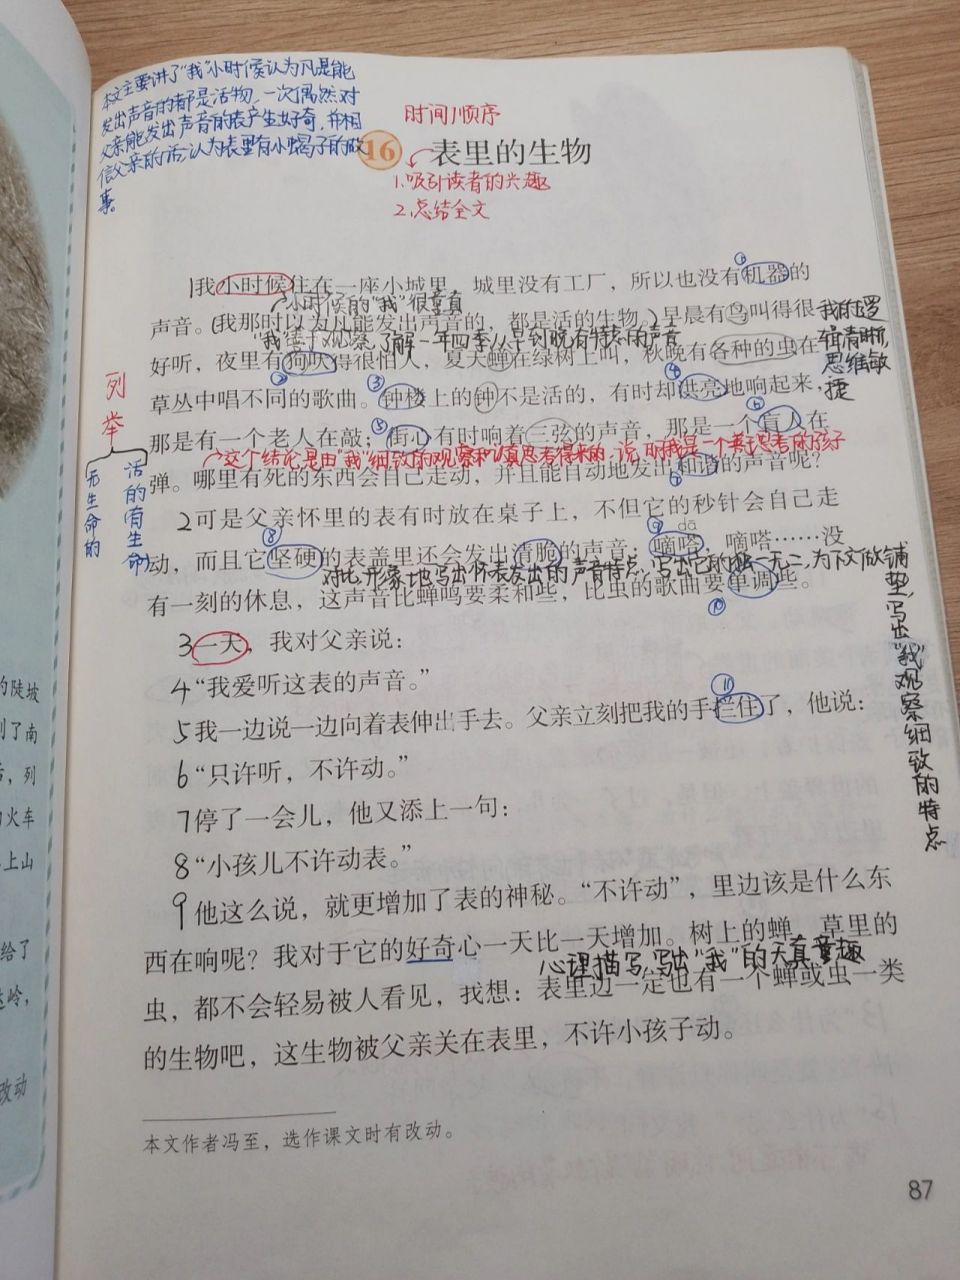 本文主要讲了“我”小时候认为凡是能
发出声音的都是活物，一次偶然对
父亲能发出声音的表产生好奇，并相
信父亲的话，认为表里有小蝎子的故
事。
时间顺序
16 表里的生物
1.吸引读者的兴趣
2.总结全文
1我小时候住在一座小城里，城里没有工厂，所以也没有机器的
小时候的“我”很童真
声音。（我那时以为凡能发出声音的，都是活的生物。）早晨有鸟叫得很
了解一年四季从早到晚有特点的声音
好听，夜里有狗吠得很怕人，夏天蝉在绿树上叫，秋晚有各种的虫在
草丛中唱不同的歌曲。钟楼上的钟不是活的，有时却洪亮地响起来，
那是有一个老人在敲；街心有时响着三弦的声音，那是一个盲人在
这个结论是由“我”细致的观察和认真思考得来的，说明我是一个善于思考的孩子
弹。哪里有死的东西会自己走动，并且能自动地发出和谐的声音呢？
我的逻
辑清晰，
思维敏
捷
列举
活的有生命
无生命的
2可是父亲怀里的表有时放在桌子上，不但它的秒针会自己走
dā
动，而且它坚硬的表盖里还会发出清脆的声音：嘀嗒，嘀嗒……没
对比，形象地写出怀表发出的声音特点，写出它的独一无二，为下文做铺
垫，写出“我”观察细致的特点
有一刻的休息，这声音比蝉鸣要柔和些，比虫的歌曲要单调些。
3一天，我对父亲说：
4“我爱听这表的声音。”
5我一边说一边向着表伸出手去。父亲立刻把我的手拦住了，他说：
6“只许听，不许动。”
7停了一会儿，他又添上一句：
8“小孩儿不许动表。”
9他这么说，就更增加了表的神秘。“不许动”，里边该是什么东
西在响呢？我对于它的好奇心一天比一天增加。树上的蝉，草里的
心理描写，写出“我”的天真童趣
虫，都不会轻易被人看见，我想：表里边一定也有一个蝉或虫一类
的生物吧，这生物被父亲关在表里，不许小孩子动。
本文作者冯至，选作课文时有改动。
87
的陡坡
到了南
，列
火车
上山
给了
岭，
改动